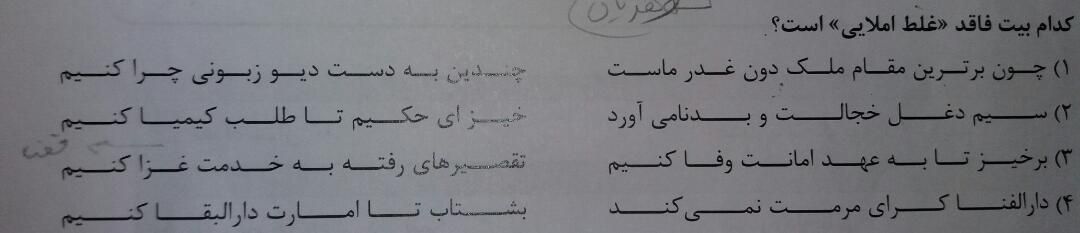 کدام بیت فاقد «غلط املایی» است؟
۱) چون برترین مقام ملک دون غدر ماست چندین به دست دیو زبونی چرا کنیم
۲) سیم دغل خجالت و بدنامی آورد خیز ای حکیم تا طلب کیمیا کنیم
۳) برخیز تا به عهد امانت وفا کنیم تقصیرهای رفته به خدمت غزا کنیم
۴) دارالفنا کرای مرمت نمی‌کند بشتاب تا امارت دارالبقا کنیم